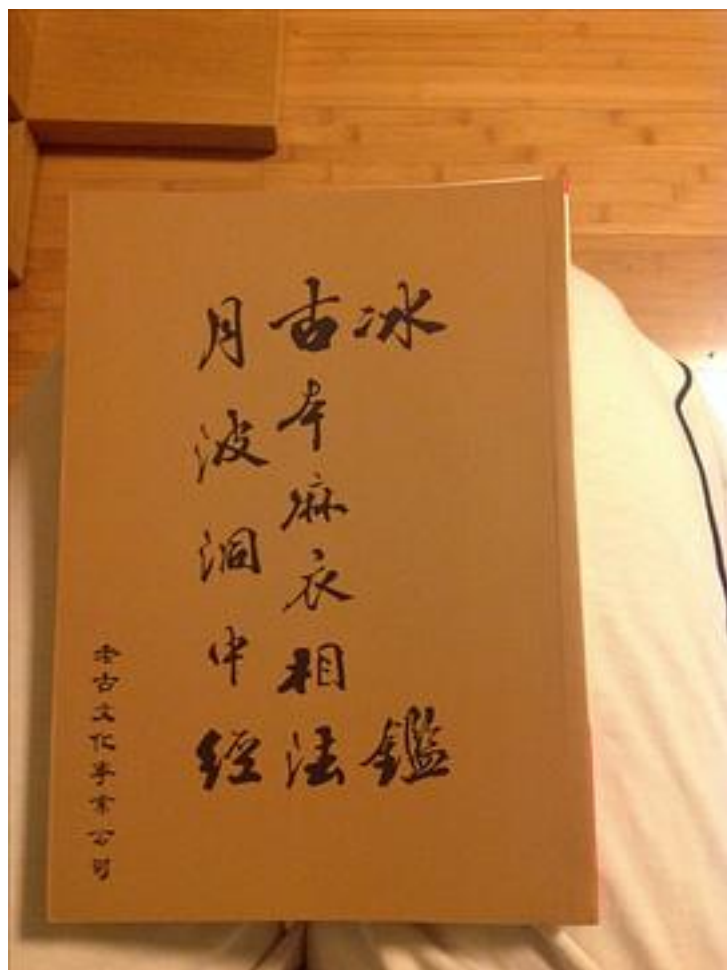 冰鑑
古本麻衣相法
月波洞中經
老古文化事業公司